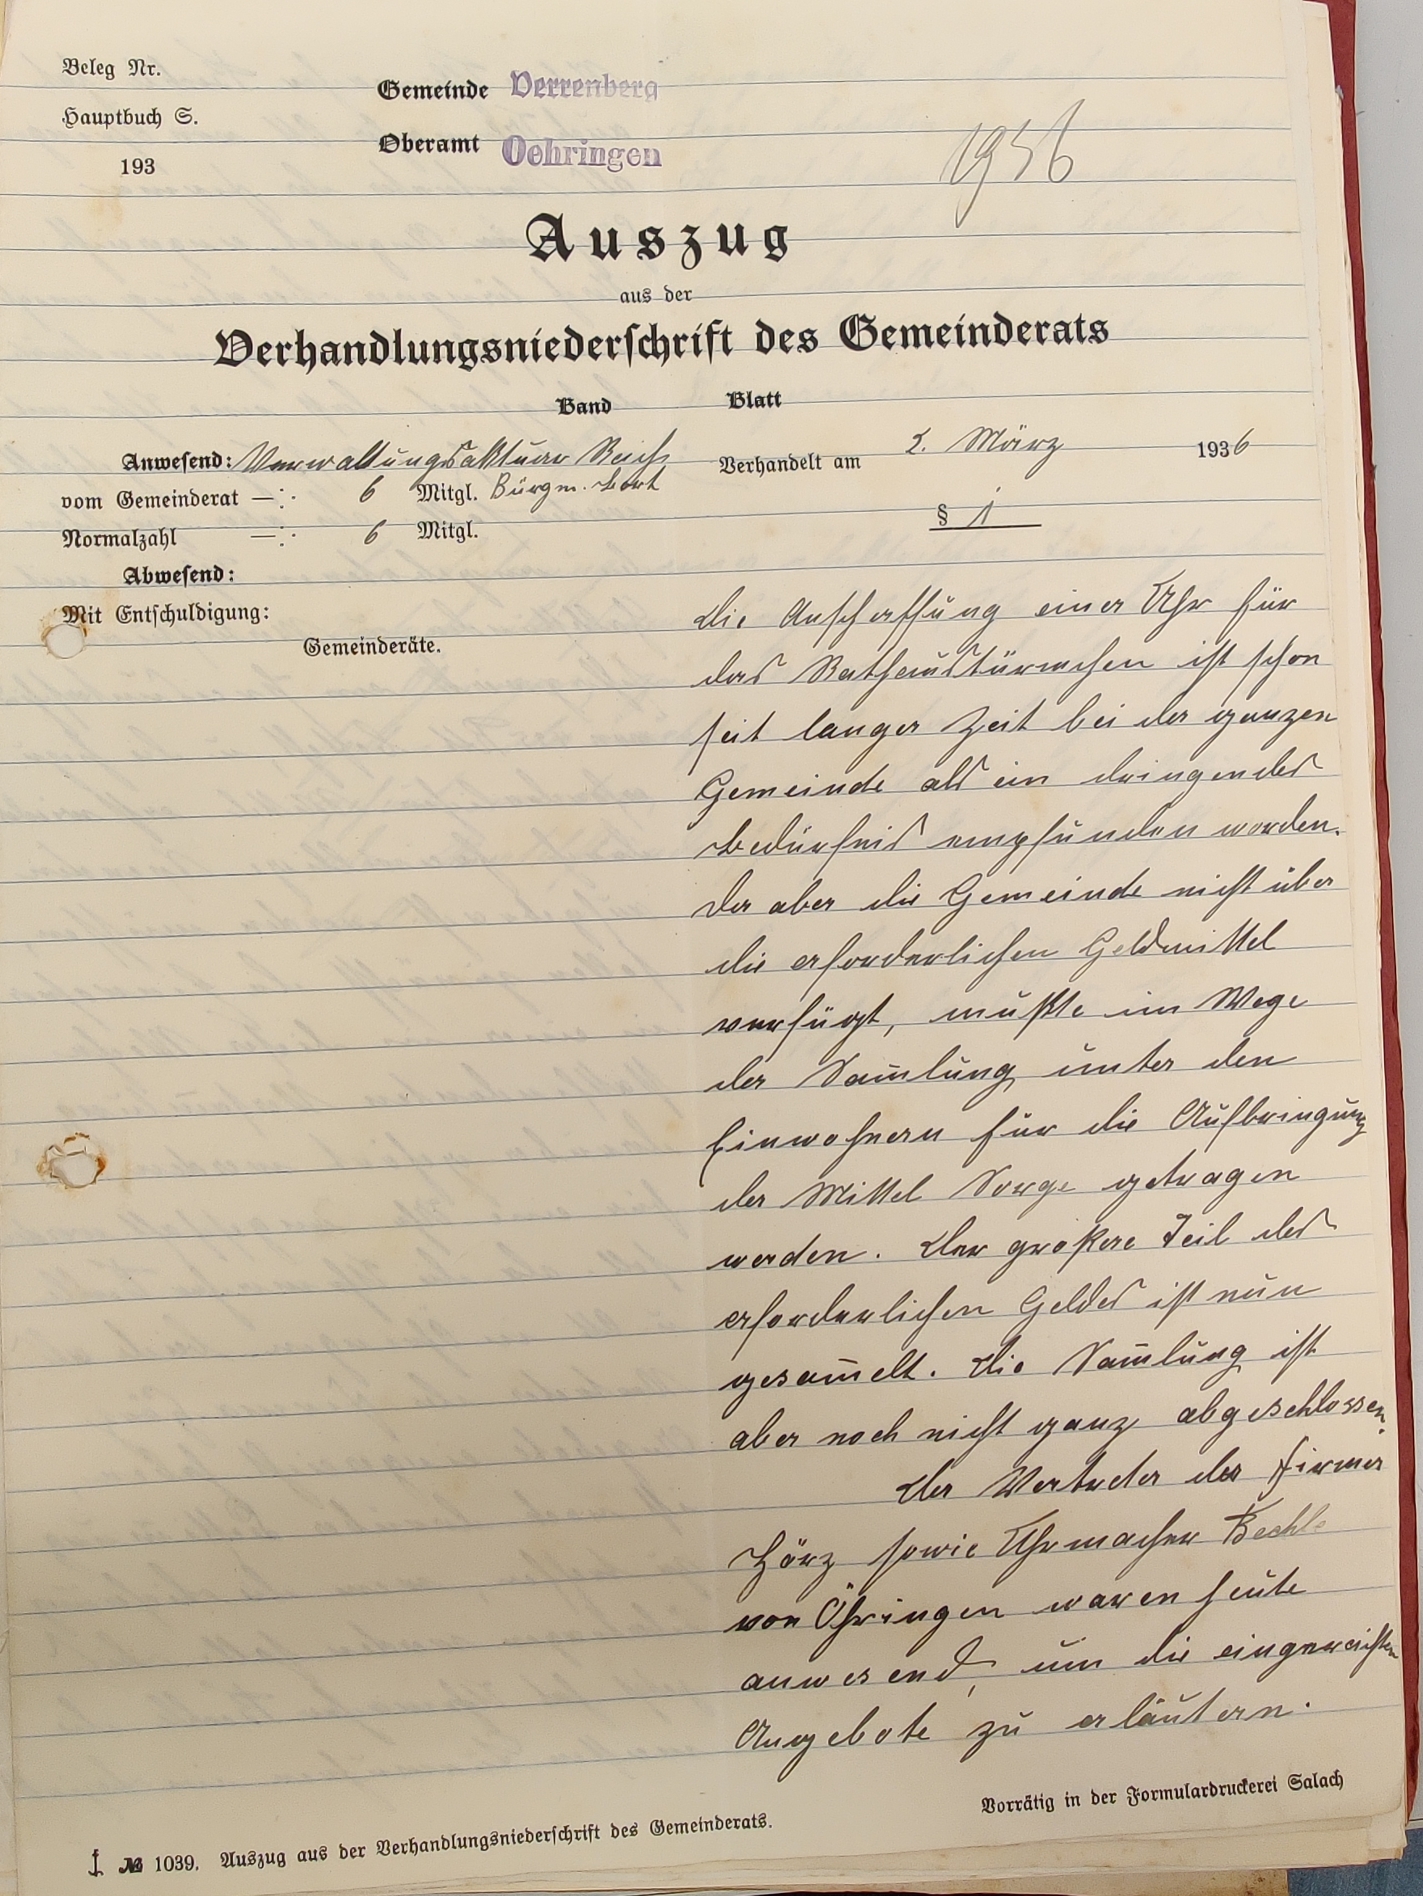 Beleg Nr.
Gemeinde Verrenberg
Hauptbuch S.
Oberamt Oehringen
193
1936
Auszug
aus der
Verhandlungsniederschrift des Gemeinderats
Band Blatt
Anwesend: Verwaltungsaktuar
Verhandelt am 2. März 1936
vom Gemeinderat —:· 6 Mitgl. Bürgm.
§ 1
Normalzahl —:· 6 Mitgl.
Abwesend:
Mit Entschuldigung:
Gemeinderäte.
Die Anschaffung einer Uhr für
das Rathaustürmchen ist schon
seit langer Zeit bei der ganzen
Gemeinde als ein dringendes
Bedürfnis empfunden worden.
Da aber die Gemeinde nicht über
die erforderlichen Geldmittel
verfügt, mußte im Wege
der Sam̅lung unter den
Einwohnern für die Aufbringung
der Mittel Sorge getragen
werden. Der großere Teil des
erforderlichen Geldes ist nun
gesam̅elt. Die Sam̅lung ist
aber noch nicht ganz abgeschlossen.
Der Vertreter der Firma
Hörz sowie Uhrmacher
von Öhringen waren heute
anwesend, um die eingereichten
Angebote zu erläutern.
Vorrätig in der Formulardruckerei Salach
№ 1039. Auszug aus der Verhandlungsniederschrift des Gemeinderats.